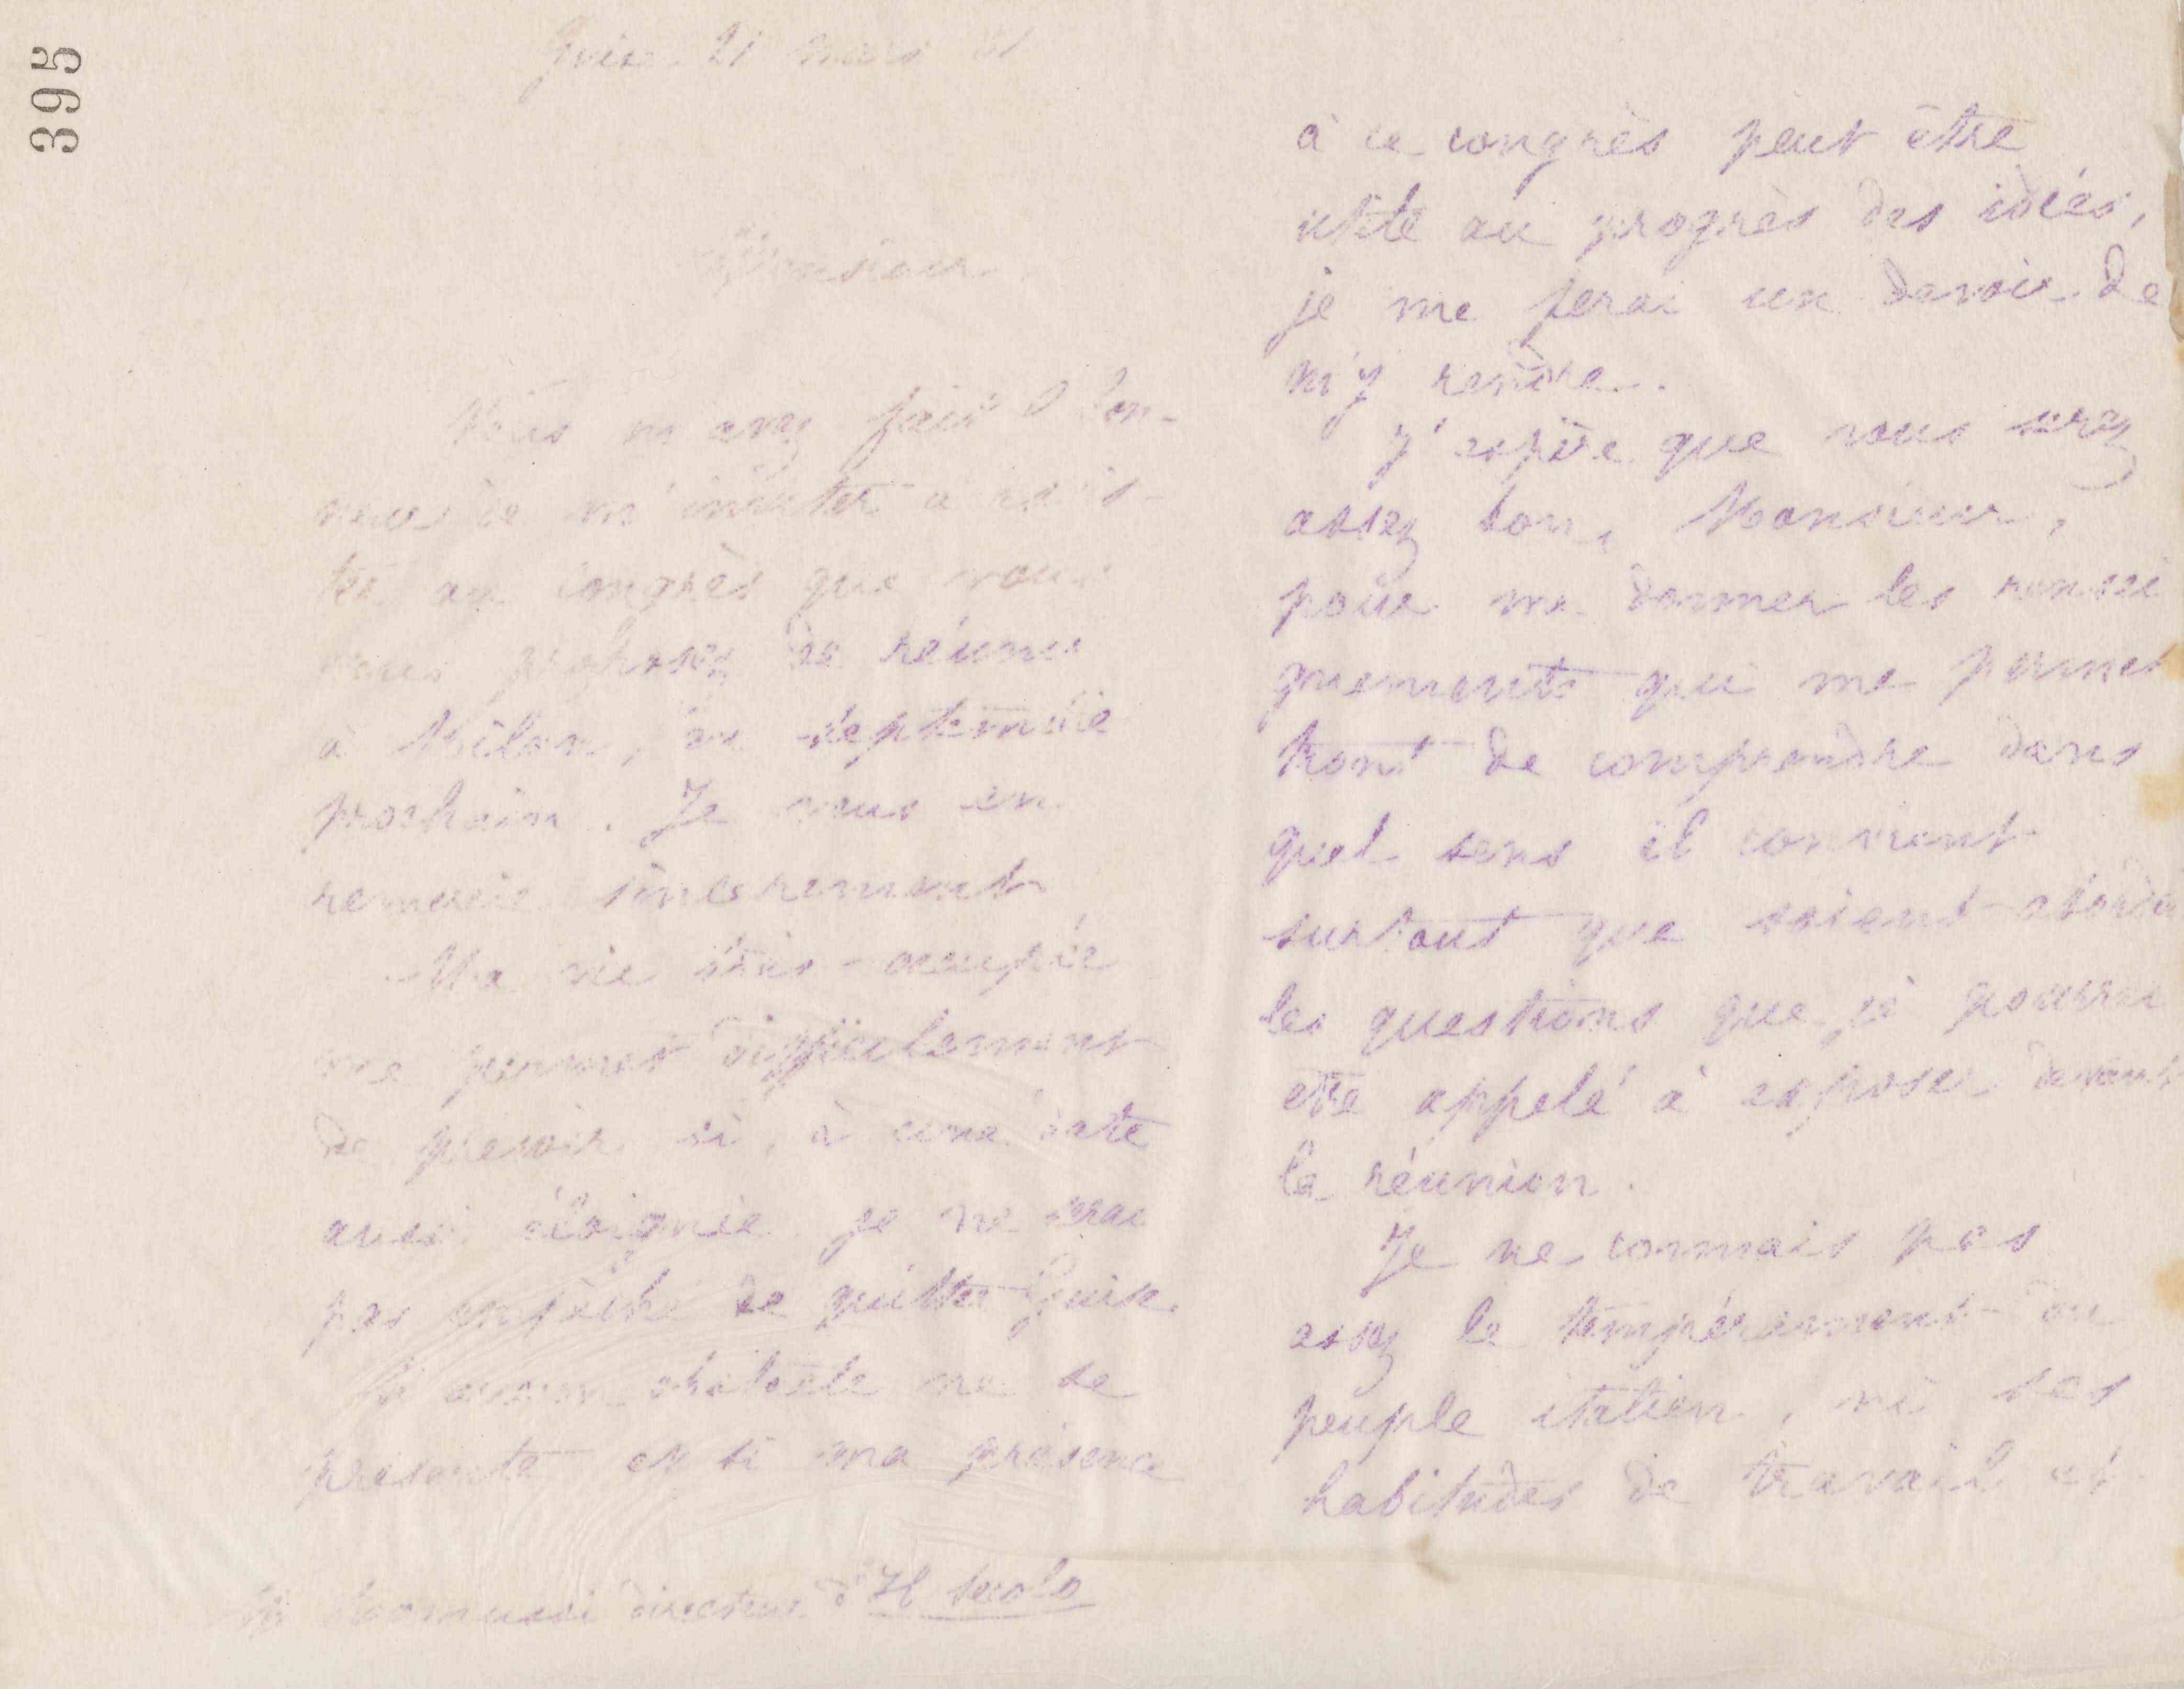 395
Guise 21 mars 81
Monsieur
Vous m'avez fait l'hon-
neur de m'inviter à assis-
ter au congrès que vous
vous proposez de réunir
à Milan, en septembre
prochain. Je vous en
remercie sincèrement
Ma vie très-occupée
me permet difficilement
de prévoir si, à une date
aussi éloignée je ne serai
pas empêché de quitter Guise.
Si aucun obstacle ne se
présente et si ma présence
M directeur d'Il Secolo
à ce congrès peut être
utile au progrès des idées,
je me ferai un devoir de
m'y rendre.
J'espère que vous serez
assez bon, Monsieur,
pour me donner les rensei
gnements qui me permet
tront de comprendre dans
quel sens il convient
surtout que soient abordées
les questions que je pourrai
être appelé à exposer devant
la réunion.
Je ne connais pas
assez le tempérament du
peuple italien, ni ses
habitudes de travail et